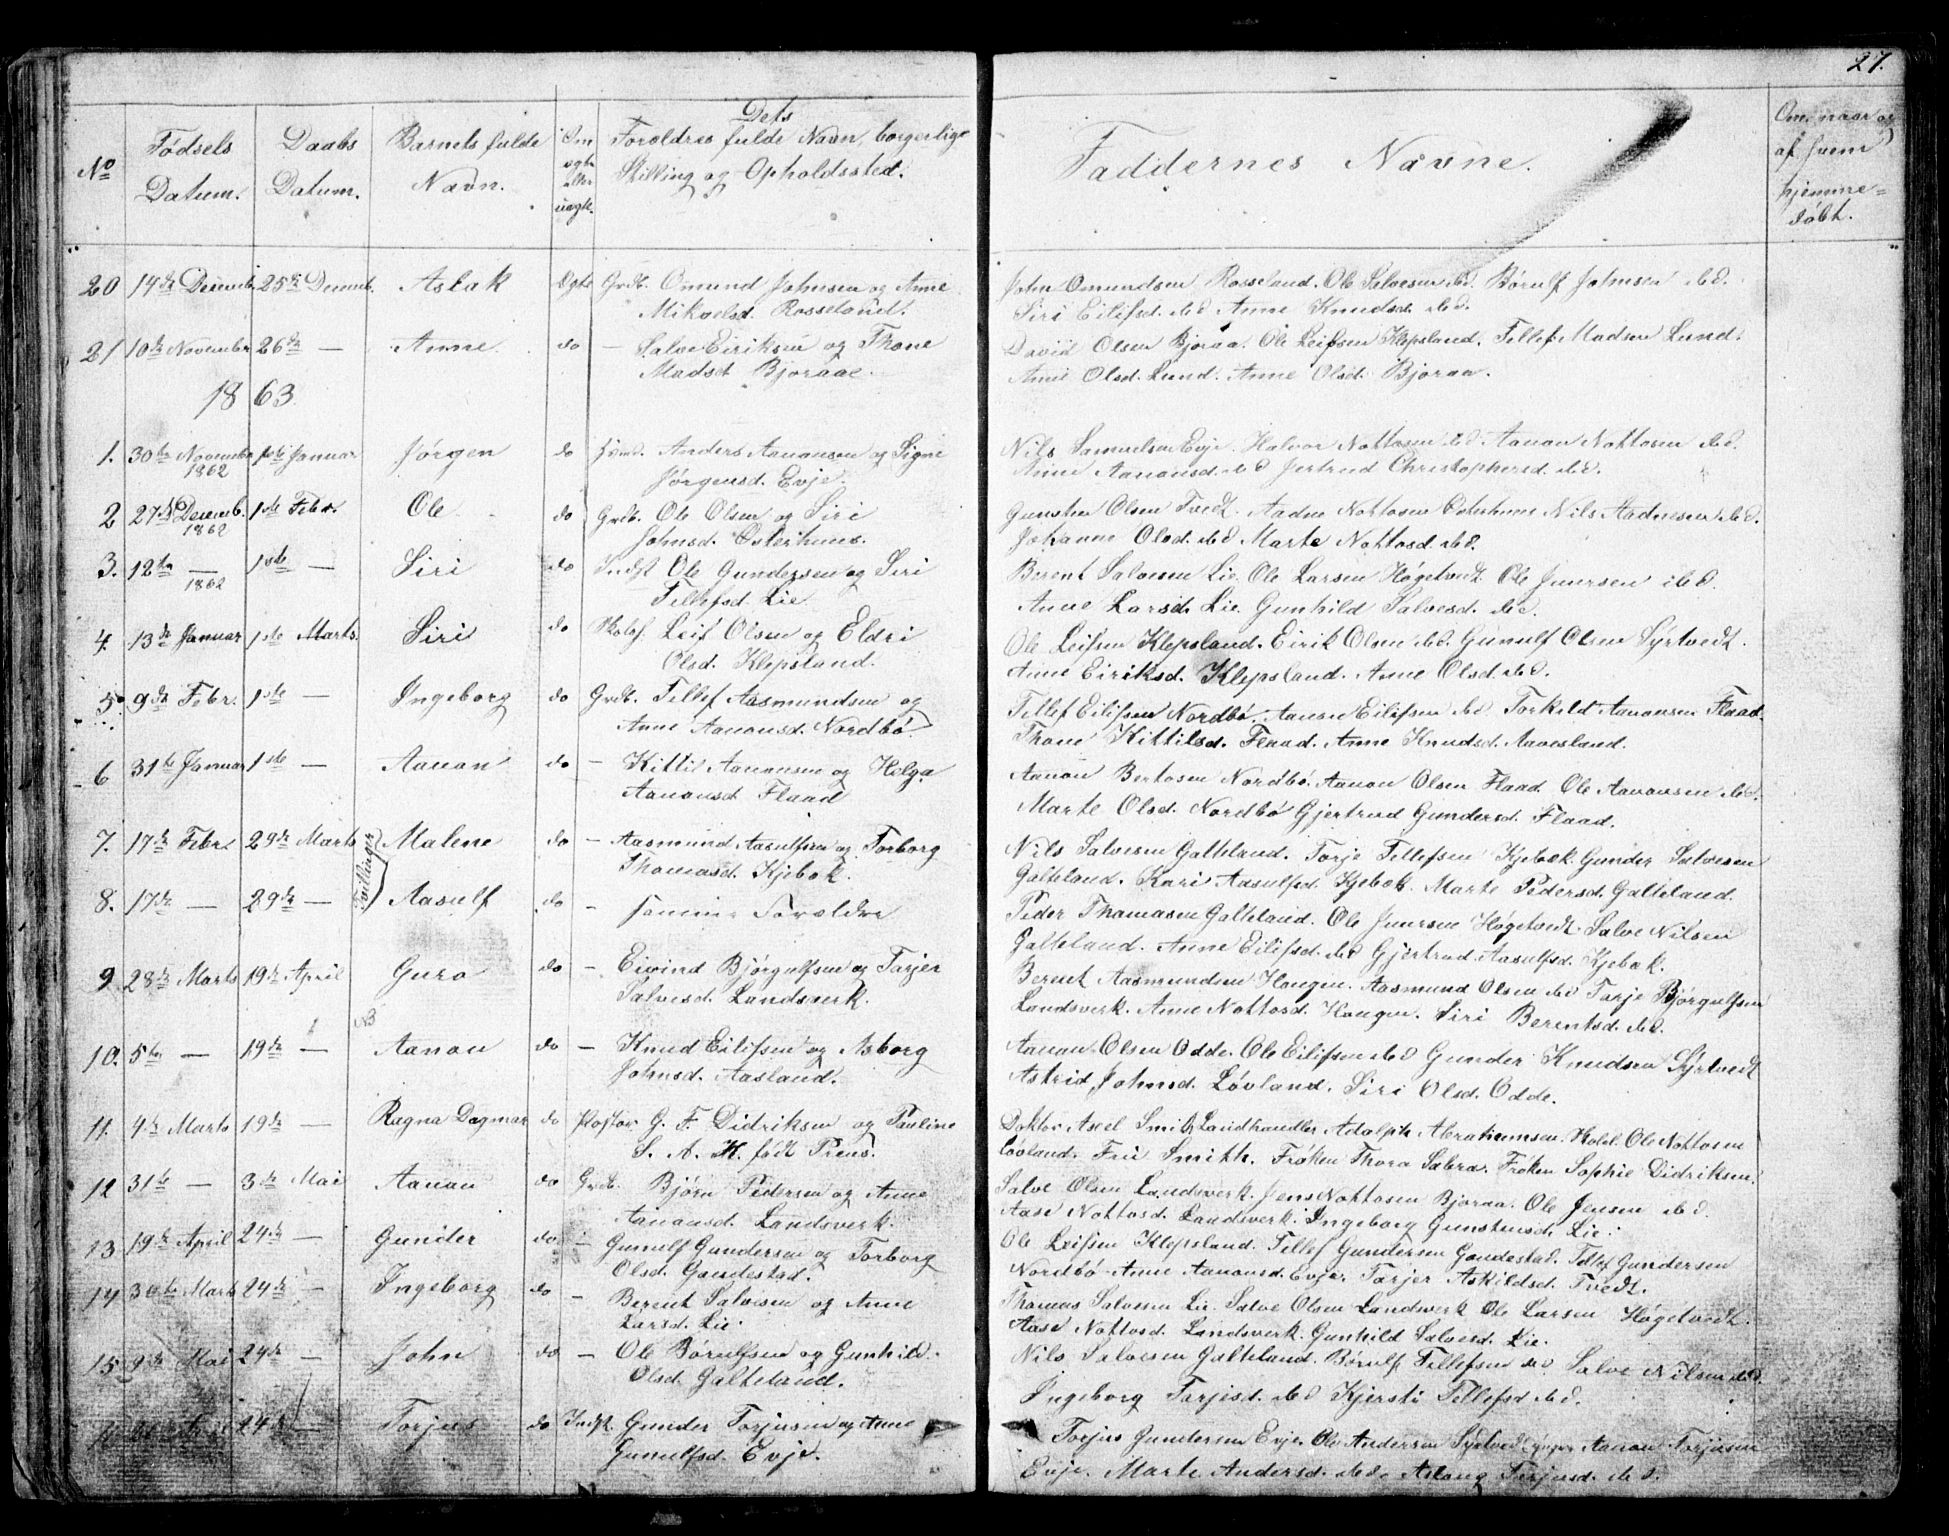 27.
No
Fødsels Datum.
Daabs Datum.
Barnets fulde Navn.
Om ægte eller uægte.
Dets Forældres fulde Navn, borgerlige Stilling og Opholdssted.
Faddernes Navne.
Om, naar og af hvem hjemmedøbt.
20 14de Decemb. 25de Decemb. Aslak Ægte Grdb. Omund Johnsen og Anne
Mikaelsd. Rosseland.
John Omundsen Rosseland. Ole Salvesen ibd. Børulf Johnsen ibd.
Siri Eilifsd. ibd Anne Knudsd. ibd.
21 10de Novembr 26de — Anne do — Salve Eiriksen og Thone
Madsd. Bjoraae.
David Olsen Bjoraa. Ole Leifsen Klepsland. Tellef Madsen Lund.
Anne Olsd. Lund. Anne Olsd. Bjoraa.
1863
1. 30te Novembr 1862 1ste Januar Jørgen do Anders Aanonsen og Signe
Jørgensd. Evje.
Nils Samuelsen Evje. Halvor Nottosen ibd Aanon Nottosen ibd.
Anne Aanonsd. ibd Jertrud Christophersd. ibd.
2 27de Decemb. 1862 1ste Febr. Ole do Grdb. Ole Olsen og Siri
Johnsd. Østerhuus.
Gunsten Olsen Tvedt. Aadne Nottosen Østerhuus Nils Aadnesen ibd.
Johanne Olsd. ibd Marte Nottosd. ibd.
3. 12te — 1862 1ste — Siri do Indst Ole Gundersen og Siri
Tellefsd. Lie
Berent Salvesen Lie. Ole Larsen Høgetvedt. Ole Juursen ibd.
Anne Larsd. Lie Gunhild Salvesd. ibd.
4. 13de Januar 1ste Marts Siri do Skolel. Leif Olsen og Eldri
Olsd. Klepsland.
Ole Leifsen Klepsland. Eirik Olsen ibd. Gunulf Olsen Syrtvedt.
Anne Eiriksd. Klepsland. Anne Olsd. ibd.
5 9de Febr. 1ste — Ingeborg do Grdb. Tellef Aasmundsen og
Anne Aanonsd. Nordbø.
Tellef Eilifsen Nordbø. Aanon Eilifsen ibd Torkild Aanonsen Flaad.
Thone Kittilsd. Flaad. Anne Knudsd. Aavesland.
6 31te Januar 1ste — Aanon do — Kittil Aanonsen og Helga
Aanonsd. Flaad
Aanon Bertosen Nordbø. Aanon Olsen Flaad Ole Aanonsen ibd.
Marte Olsd. Nordbø Gjertrud Gundersd. Flaad.
7. 17de Febr. 29de Marts Malene do — Aasmund Aasulfsen og Torborg
Thomasd. Kjebek.
Tvillinger
Nils Salvesen Galteland. Torje Tellefsen Kjebek. Gunder Salvesen
Galteland. Kari Aasulfsd. Kjebek. Marte Pedersd. Galteland.
8. 17de — 29de — Aasulf do — samme Forældre
Peder Thomasen Galteland. Ole Juursen Høgetvedt. Salve Nilsen
Galteland. Anne Eilifsd. ibd Gjertrud Aasulfsd. Kjebek.
9 28de Marts 19de April Guro do — Eivind Bjørgulfsen og Tarjer
Salvesd. Landsverk.
Berent Aasmundsen Hougen. Aasmund Olsen ibd Tarje Bjørgulfsen
Landsverk. Anne Nottosd. Hougen. Siri Berentsd. ibd.
10. 5te — 19de — Aanon do — Knud Eilifsen og Asborg
Johnsd. Aasland.
Aanon Olsen Odde. Ole Eilifsen ibd Gunder Knudsen Syrtvedt
Astrid Johnsd. Løvland. Siri Olsd. Odde.
11. 4de Marts 19de — Ragna Dagmar do Pastor G. F. Didriksen og Pauline
S. A. H. født Preus.
Doktor Axel Smith, Landhandler Adolph Abrahamsen. Skolel. Ole Nottosen
Løvland. Fru Smith. Frøken Thora Sabra. Frøken Sophie Didriksen.
12 31te — 3de Mai Aanon do Grdb. Bjørn Pedersen og Anne
Aanonsd. Landsverk.
Salve Olsen Landsverk. Jens Nottosen Bjoraa. Ole Jensen ibd.
Aase Nottosd. Landsverk. Ingeborg Gunstensd. Lie.
13 19de April 24de — Gunder do — Gunulf Gundersen og Torborg
Olsd. Gaudestad.
Ole Leifsen Klepsland. Tellef Gundersen Gaudestad. Tellef Gundersen
Nordbø Anne Aanonsd. Evje. Tarjer Askildsd. Tvedt.
14 30te Marts 24de — Ingeborg do — Berent Salvesen og Anne
Larsd. Lie.
Thomas Salvesen Lie. Salve Olsen Landsverk Ole Larsen Høgetvedt.
Aase Nottosd. Landsverk. Gunhild Salvesd. Lie.
15 9de Mai 24de — John do — Ole Børulfsen og Gunhild
Olsd. Galteland.
Nils Salvesen Galteland. Børulf Tellefsen ibd Salve Nilsen ibd.
Ingeborg Tarjesd. ibd Kjersti Tellefsd ibd.
24de — Torjus do Indst. Gunder Torjusen og Anne
Gunulfsd. Evje.
Torjus Gundersen Evje. Ole Andersen Aanon Torjusen
Evje. Marte Andersd. ibd. Aslaug Torjusd. ibd.